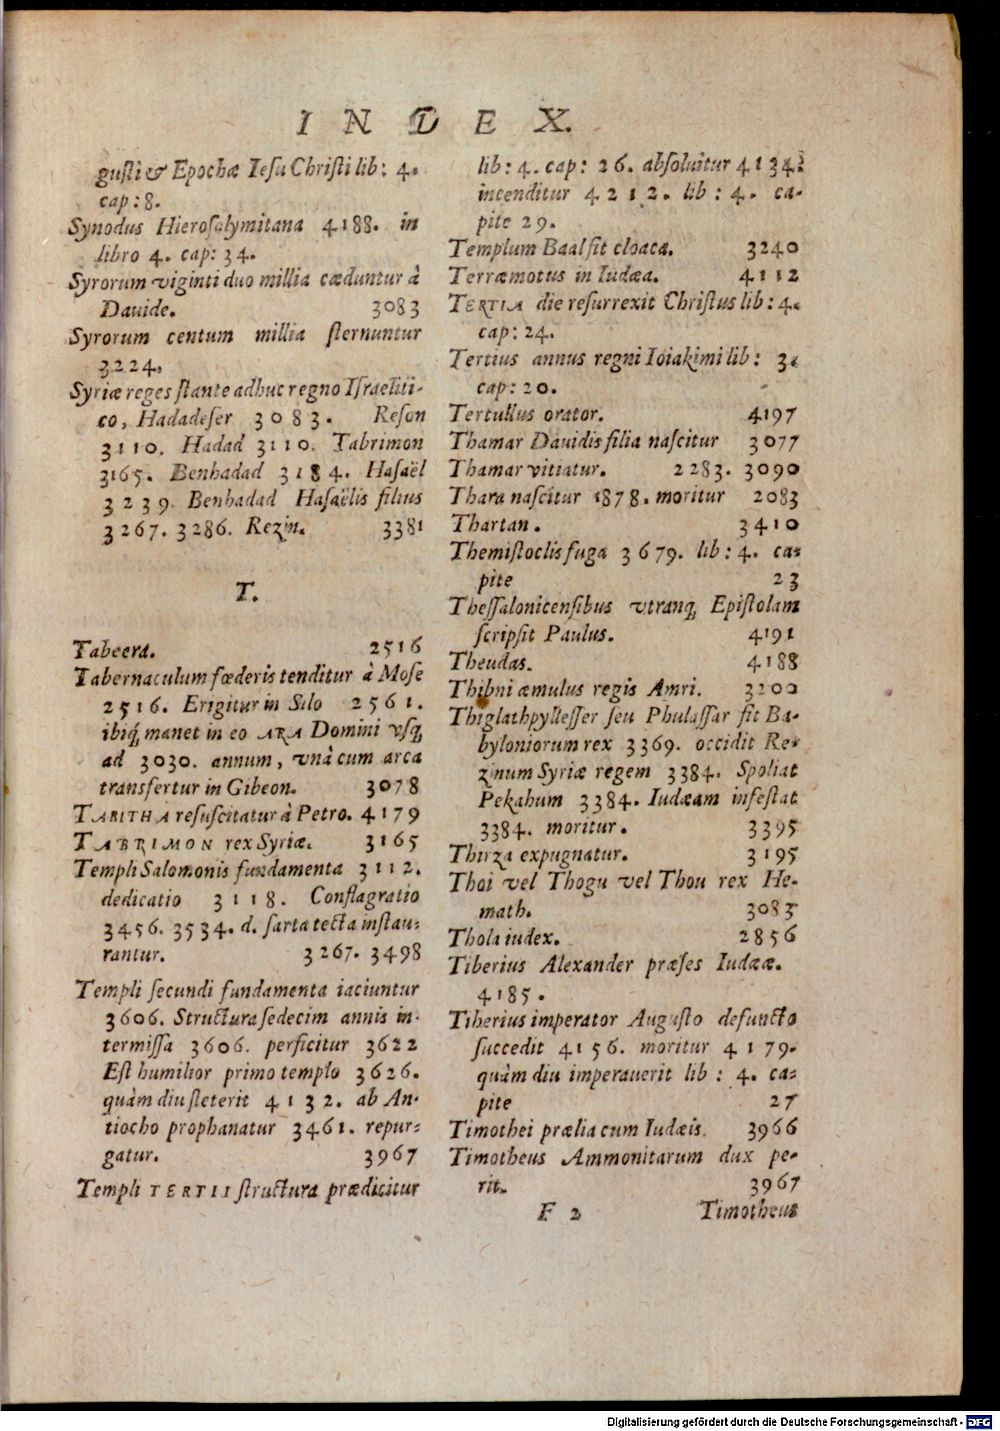 INDEX.
gusti & Epochæ Iesu Christi lib: 4.
cap: 8.
Synodus Hierosolymitana 4188. in
libro 4. cap: 34.
Syrorum viginti duo millia cæduntur à
Dauide. 3083
Syrorum centum millia sternuntur
3224.
Syriæ reges stante adhuc regno Israeliti-
co, Hadadeser 3083. Reson
3110. Hadad 3110. Tabrimon
3165. Benhadad 3184. Hasaël
3239. Benhadad Hasaëlis filius
3267. 3286. Rezin. 3381
T.
Tabeera. 2516
Tabernaculum fœderis tenditur à Mose
2516. Erigitur in Silo 2561.
ibiq́; manet in eo ARA Domini vsq;
ad 3030. annum, vnà cum arca
transfertur in Gibeon. 3078
TABITHA resuscitatur à Petro. 4179
TABRIMON rex Syriæ. 3165
Templi Salomonis fundamenta 3112.
dedicatio 3118. Conflagratio
3456. 3534. d. sarta tecta instau-
rantur. 3267. 3498
Templi secundi fundamenta iaciuntur
3606. Structura sedecim annis in-
termissa 3606. perficitur 3622
Est humilior primo templo 3626.
quàm diu steterit 4132. ab An-
tiocho prophanatur 3461. repur-
gatur. 3967
Templi TERTII structura prædicitur
lib: 4. cap: 26. absoluitur 4134.
incenditur 4212. lib: 4. ca-
pite 29.
Templum Baal fit cloaca. 3240
Terræmotus in Iudæa. 4112
TERTIA die resurrexit Christus lib: 4.
cap: 24.
Tertius annus regni Ioiakimi lib: 3.
cap: 20.
Tertullus orator. 4197
Thamar Dauidis filia nascitur 3077
Thamar vitiatur. 2283. 3090
Thara nascitur 1878. moritur 2083
Thartan. 3410
Themistoclis fuga 3679. lib: 4. ca-
pite 23
Thessalonicensibus vtranq; Epistolam
scripsit Paulus. 4191
Theudas. 4188
Thibni æmulus regis Amri. 3200
Thiglathpyllesser seu Phulassar fit Ba-
byloniorum rex 3369. occidit Re-
zinum Syriæ regem 3384. Spoliat
Pekahum 3384. Iudæam infestat
3384. moritur. 3395
Thirza expugnatur. 3195
Thoi vel Thogu vel Thou rex He-
math. 3083
Thola iudex. 2856
Tiberius Alexander præses Iudææ.
4185.
Tiberius imperator Augusto defuncto
succedit 4156. moritur 4179.
quàm diu imperauerit lib: 4. ca-
pite 27
Timothei prælia cum Iudæis. 3966
Timotheus Ammonitarum dux pe-
rit. 3967
F 2 Timotheus
Digitalisierung gefördert durch die Deutsche Forschungsgemeinschaft - DFG